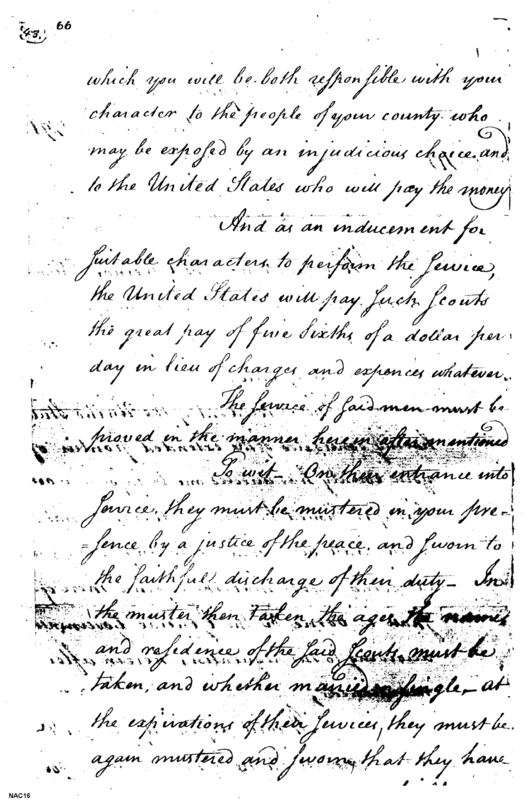 48. 66
which you will be both responsible with your
character to the people of your county who
may be exposed by an injudicious choice. and
to the United States who will pay the money
And as an inducement for
suitable characters to perform the service,
the United States will pay such Scouts
the great pay of five Sixths of a dollar per
day in lieu of charges and expences whatever.
The service of said men must be
proved in the manner herein after mentioned
To wit — On their entrance into
service, they must be mustered in your pre-
=sence by a justice of the peace. and sworn to
the faithful discharge of their duty — In
the muster then taken, the ages, the names
and residence of the said Scouts must be
taken, and whether married or single — at
the expirations of their services, they must be
again mustered and sworn, that they have
NAC16